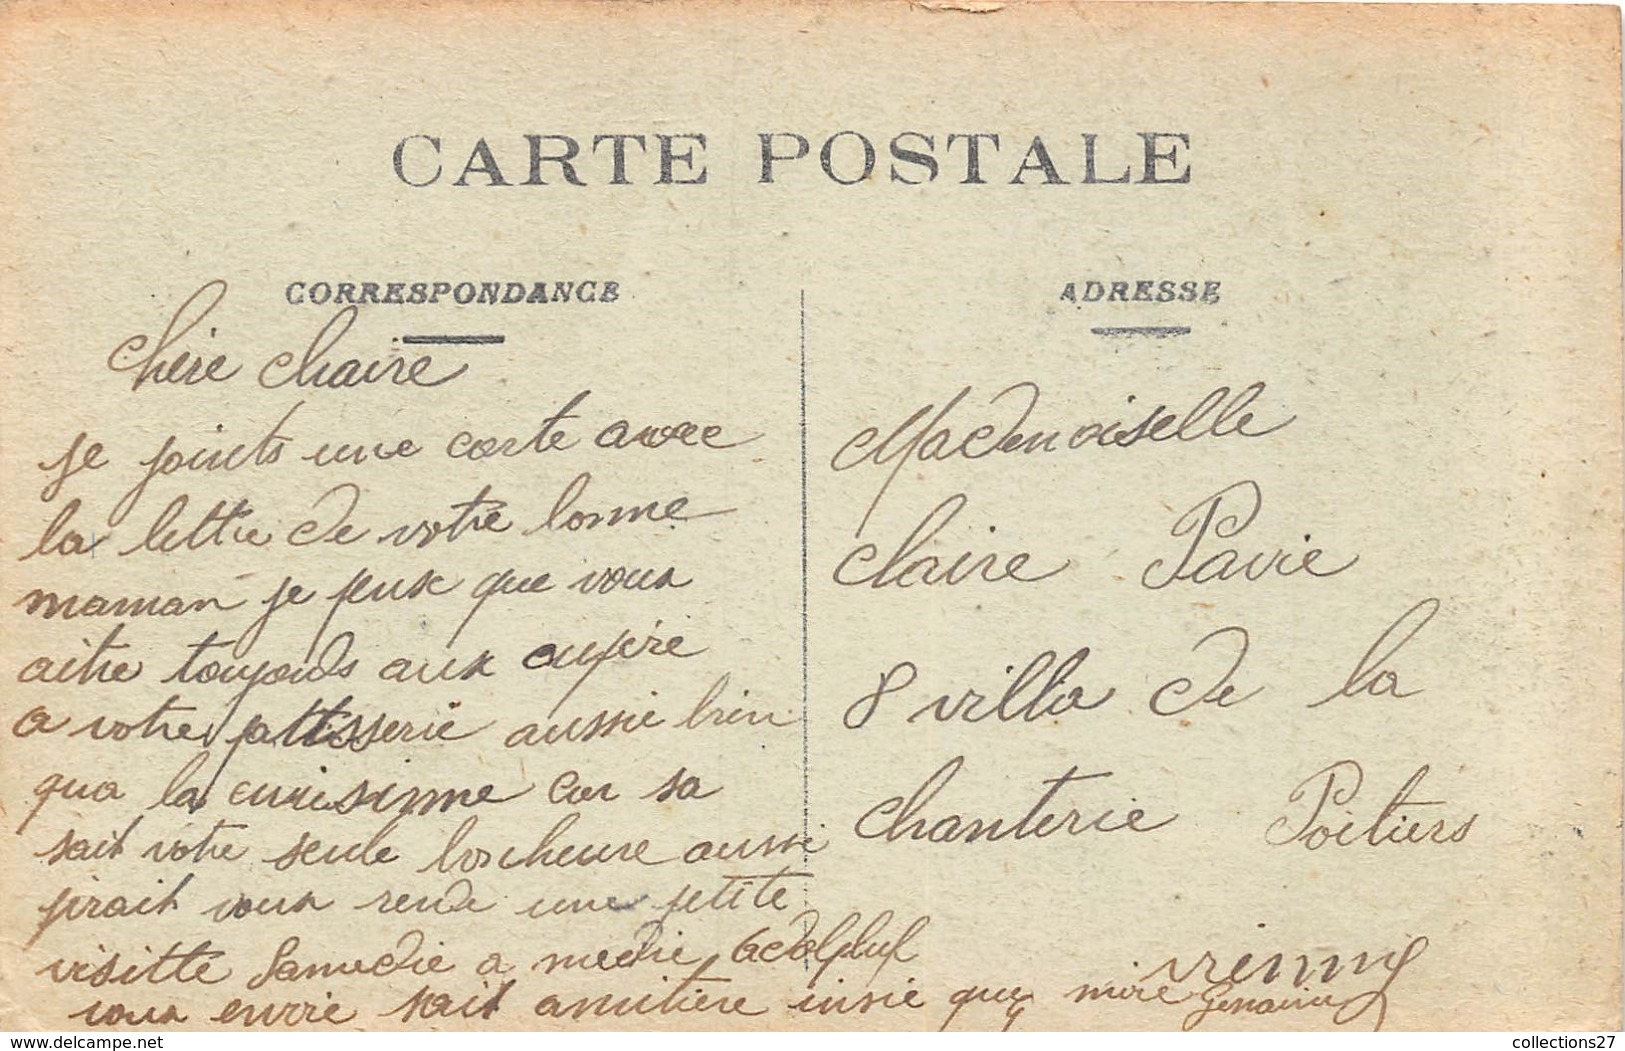 CARTE POSTALE
CORRESPONDANCE
chère chaire
je joints une carte avec
la lettre de votre bonne
maman je peux que vous
aitre toujouds aux oupéré
a votre pattisserie aussie bien
qua la cuisinne car sa
sait votre seule boncheure aussi
jirait vous rende une petite
visitte Samedie a medie adolphe
vous envoie sait amitière insie que mire
ADRESSE
Mademoiselle
claire Pavie
8 villa de la
chanterie Poitiers
delcampe.net
collections27